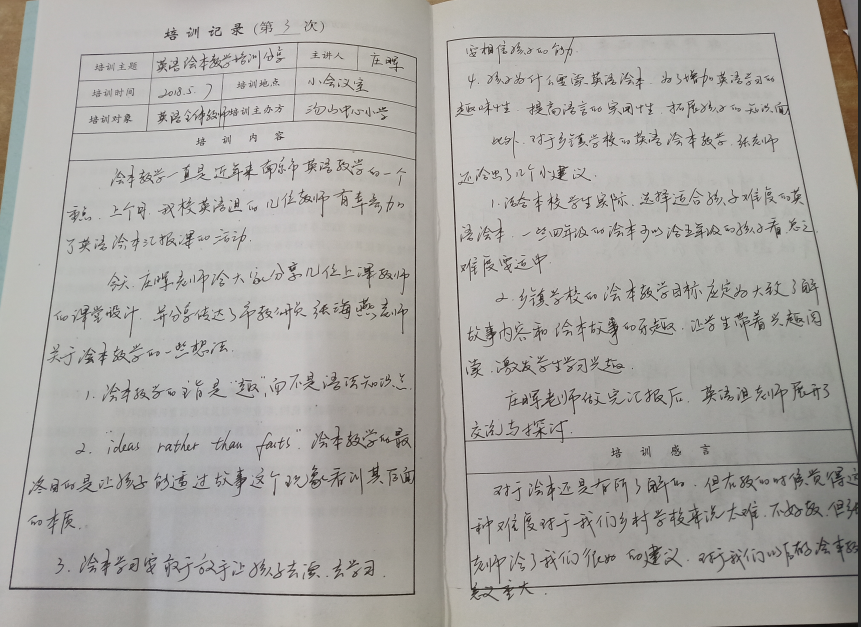 培训记录(第 3 次)
培训主题 英语绘本教学培训分享 主讲人 庄晖
培训时间 2018.5.7 培训地点 小会议室
培训对象 英语全体教师 培训主办方 汤山中心小学
培训内容
绘本教学一直是近年来南京市英语教学的一个
重点。上个月,我校英语组的几位教师有幸参加
了英语绘本汇报课的活动.
今天,庄晖老师给大家分享几位上课教师
的课堂设计,并分享传达了市教研员张海燕老师
关于绘本教学的一些想法.
1. 绘本教学的主旨是“趣”,而不是语法知识点.
2. “ideas rather than facts”. 绘本教学的最
终目的是让孩子能透过故事这个现象看到其后面
的本质.
3. 绘本学习要敢于放手让孩子去读、去学习.
要相信孩子的能力.
4. 孩子为什么要学英语绘本,为了增加英语学习的
趣味性,提高语言的实用性,拓展孩子的知识面
此外,对于乡镇学校的英语绘本教学,张老师
还给出了几个小建议.
1. 结合本校学生实际,选择适合孩子难度的英
语绘本,一些四年级的绘本可以给五年级的孩子看,总之
难度要适中.
2. 乡镇学校的绘本教学目标应定为大致了解
故事内容和绘本故事的乐趣,让学生带着兴趣阅
读,激发学生学习兴趣.
庄晖老师做完汇报后,英语组老师展开了
交流与探讨.
培训感言
对于绘本还是有所了解的,但在教的时候觉得这
种难度对于我们乡村学校来说太难,不好教,但张
老师给了我们很好的建议,对于我们以后的绘本教
意义重大.